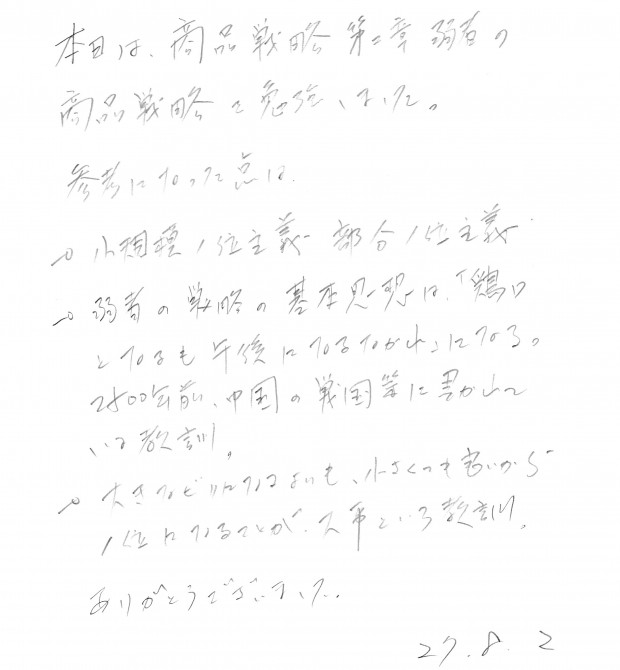 本日は、商品戦略第二章弱者の
商品戦略を勉強しました。
参考になった点は、
→小規模1位主義 部分1位主義
→弱者の戦略の基本思想は、「鶏口
となるも午後になるなかれ」になる。
2500年前、中国の戦国策に書かれて
いる教訓。
→大きなビリになるよりも、小さくても良いから
1位になることが、大事という教訓。
ありがとうございました。
27.8.2